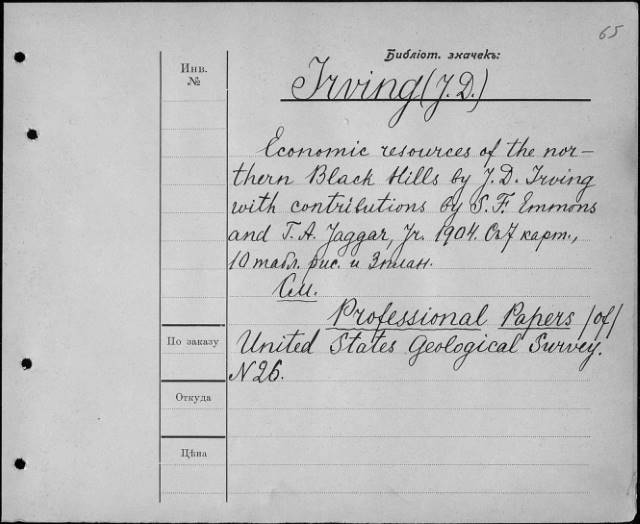 65
Библіот. значекъ:
Инв.
№
Irving (J. D.)
Economic resources of the nor-
thern Black Hills by J. D. Irving
with contributions by S. F. Emmons
and T. A. Jaggar, Jr. 1904. Съ 7 карт.,
10 табл. рис. и 3 план.
См.
Professional Papers /of/
По заказу
United States Geological Survey.
N 26.
Откуда
Цѣна